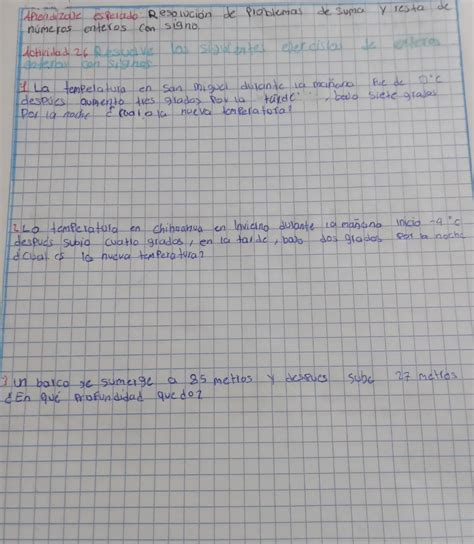 Aprendizaje esperado Resolución de Problemas de suma y resta de
números enteros con signo.
Actividad 26 Resuelve los siguientes ejercicios de enteros
enteros con signos
1. La temperatura en San Miguel durante la mañana fue de °C
después aumento tres grados Por la tarde, bajo siete grados
Por la noche ¿cual a la nueva temperatura?
2. La temperatura en chihuahua en invierno durante la mañana inicio -4°C
después subio cuatro grados, en la tarde, bajo dos grados por la noche
¿cual es la nueva temperatura?
3 un barco se sumerge a 85 metros y despues sube 27 metros
¿En qué profundidad quedo?